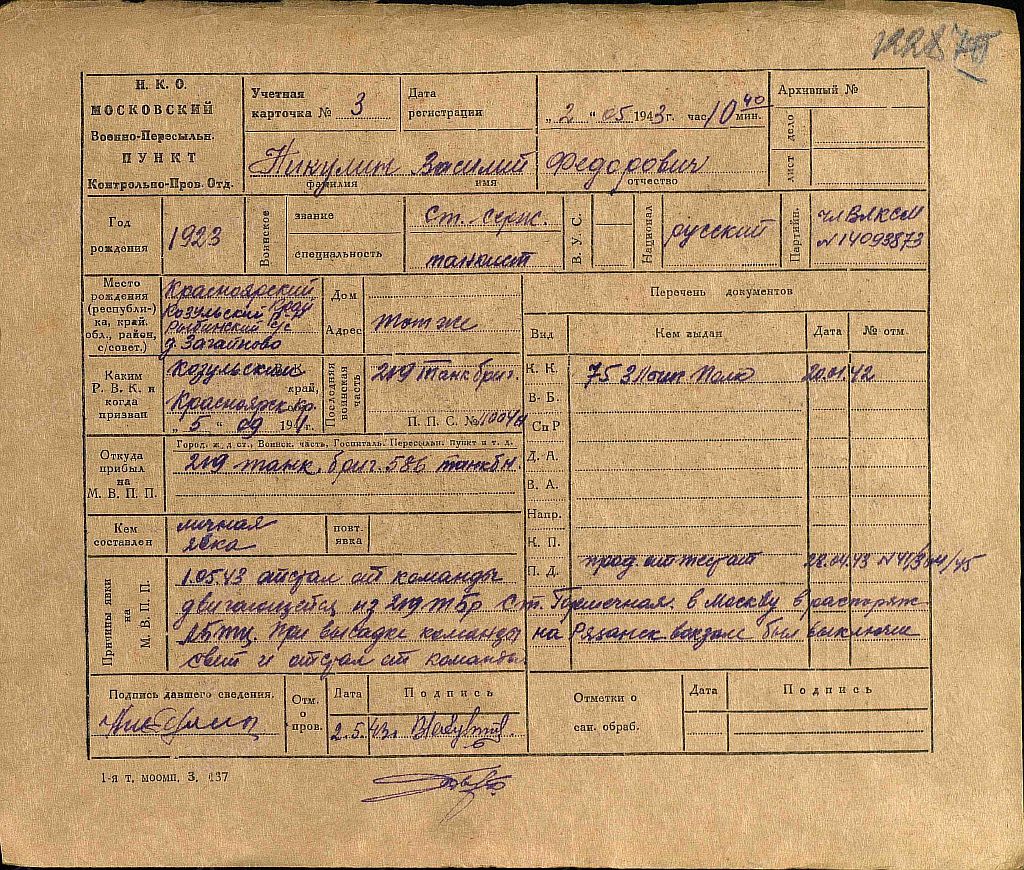 Н. К. О.
МОСКОВСКИЙ
Военно-Пересыльн.
ПУНКТ
Контрольно-Пров. Отд.
Учетная
карточка № 3
Дата
регистрации
„ 2 “ 05 1943 г. час 10 40 мин.
Архивный №
дело
лист
Никулин Василий Федорович
фамилия имя отчество
Год
рождения
1923
Воинское
звание ст. серж.
специальность танкист
В. У. С.
Национал
русский
Партийн.
чл ВЛКСМ
№ 14093873
Место
рождения
(республи-
ка, край,
обл., район,
с/совет.)
Красноярский
Козульский
с/с
д. Загайново
Дом
Адрес
тот же
Перечень документов
Вид
Кем выдан
Дата
№ отм.
Каким
Р. В. К. и
когда
призван
Козульским
край,
Красноярск кр.
„ 5 “ 09 1941 г.
Последняя
воинская
часть
219 танк бриг.
П. П. С. №
К. К. 75 Полк 20.01.42
В. Б.
Сп Р
Д. А.
В. А.
Напр.
К. П.
П. Д. прод. аттестат 28.04.43
Откуда
прибыл
на
М. В. П. П.
Город, ж. д. ст., Воинск. часть, Госпиталь, Пересыльн. Пункт и т. д.
219 танк. бриг. 586 танк бн.
Кем
составлен
личная
явка
повт.
явка
Причины явки
на
М. В. П. П.
1.05.43 отстал от команды
двигающейся из 219 ТБр ст. Горшечная в Москву в распоряж
При высадке команды на Рязанск вокзале был
свет и отстал от команды
Подпись давшего сведения.
Никулин
Отм.
о
пров.
Дата
2.5.43г.
Подпись
Отметки о
сан. обраб.
Дата
Подпись
1-я т. МООМП, З. 437